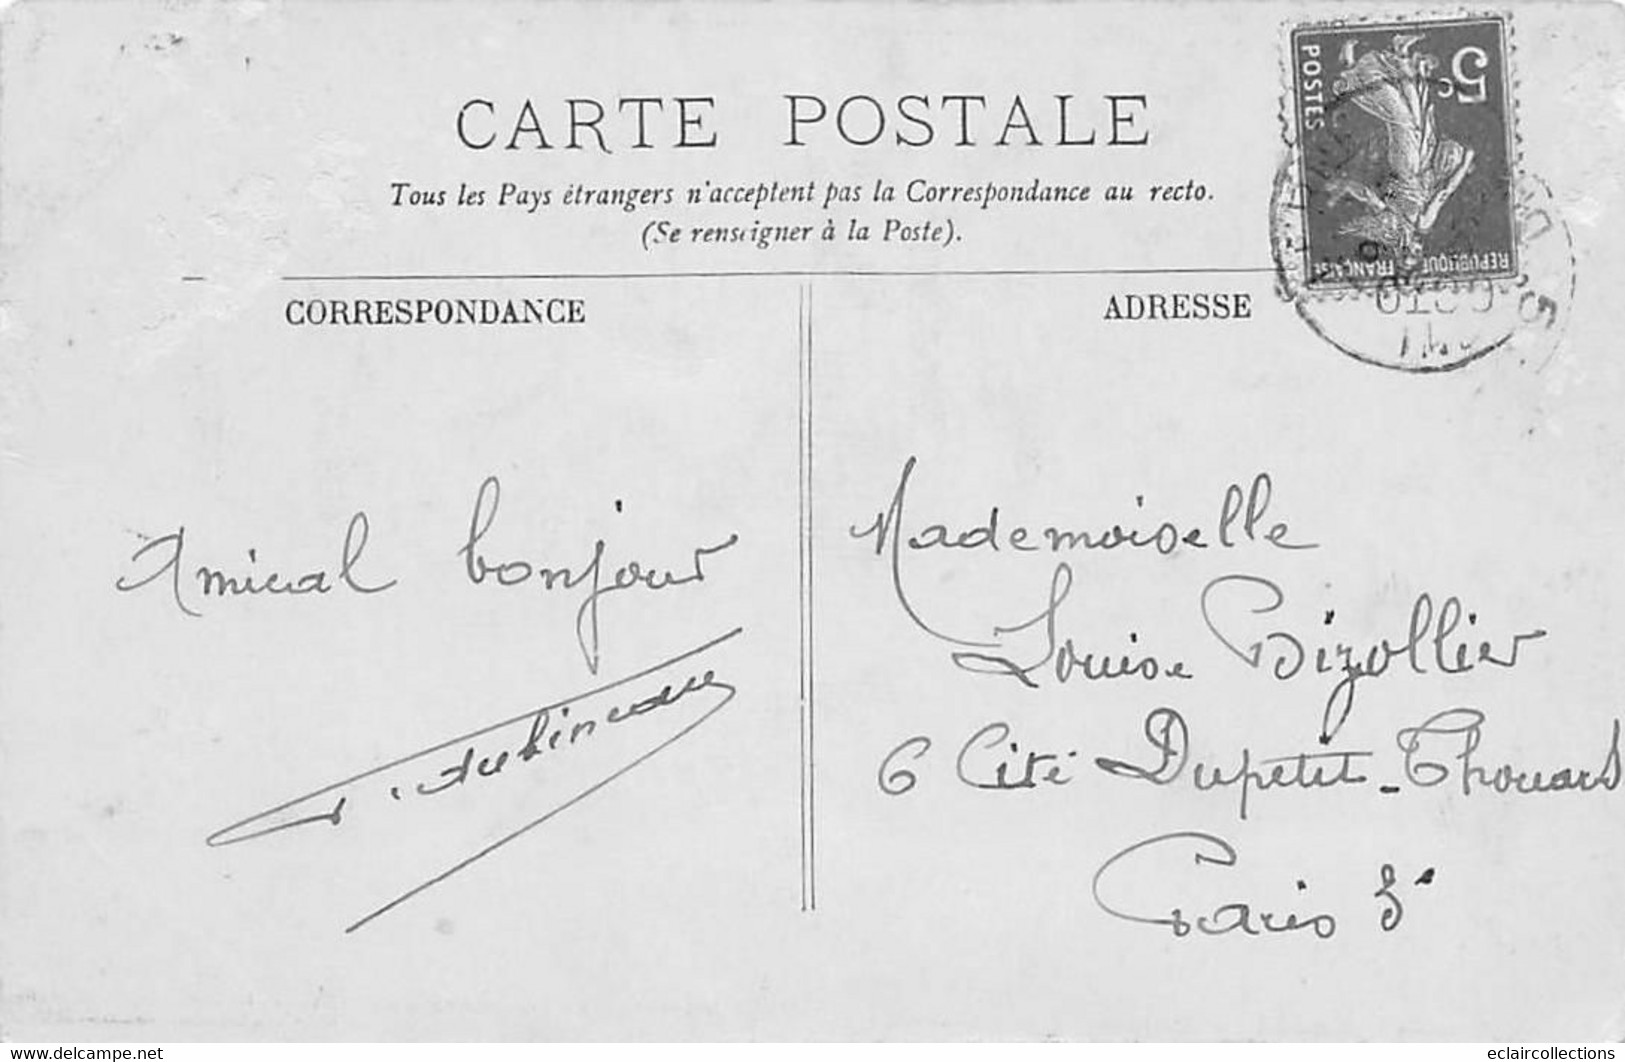 CARTE POSTALE
Tous les Pays étrangers n'acceptent pas la Correspondance au recto.
(Se renseigner à la Poste).
CORRESPONDANCE
ADRESSE
5c
POSTES
REPUBLIQUE FRANÇAISE
Amical bonjour
Mademoiselle
Louise Bizollier
6 Cité Dupetit-Thouars
Paris 3e
delcampe.net
eclaircollections